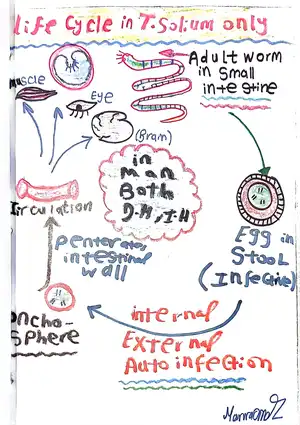 life Cycle in T.Solium only
Adult worm
in Small
intestine
Muscle
Eye
(Brain)
in
Man
Both
D.H, I.H
Circulation
Egg in
Stool
(Infective)
penterates
intestinal
wall
internal
Oncho-
sphere
External
Autoinfection